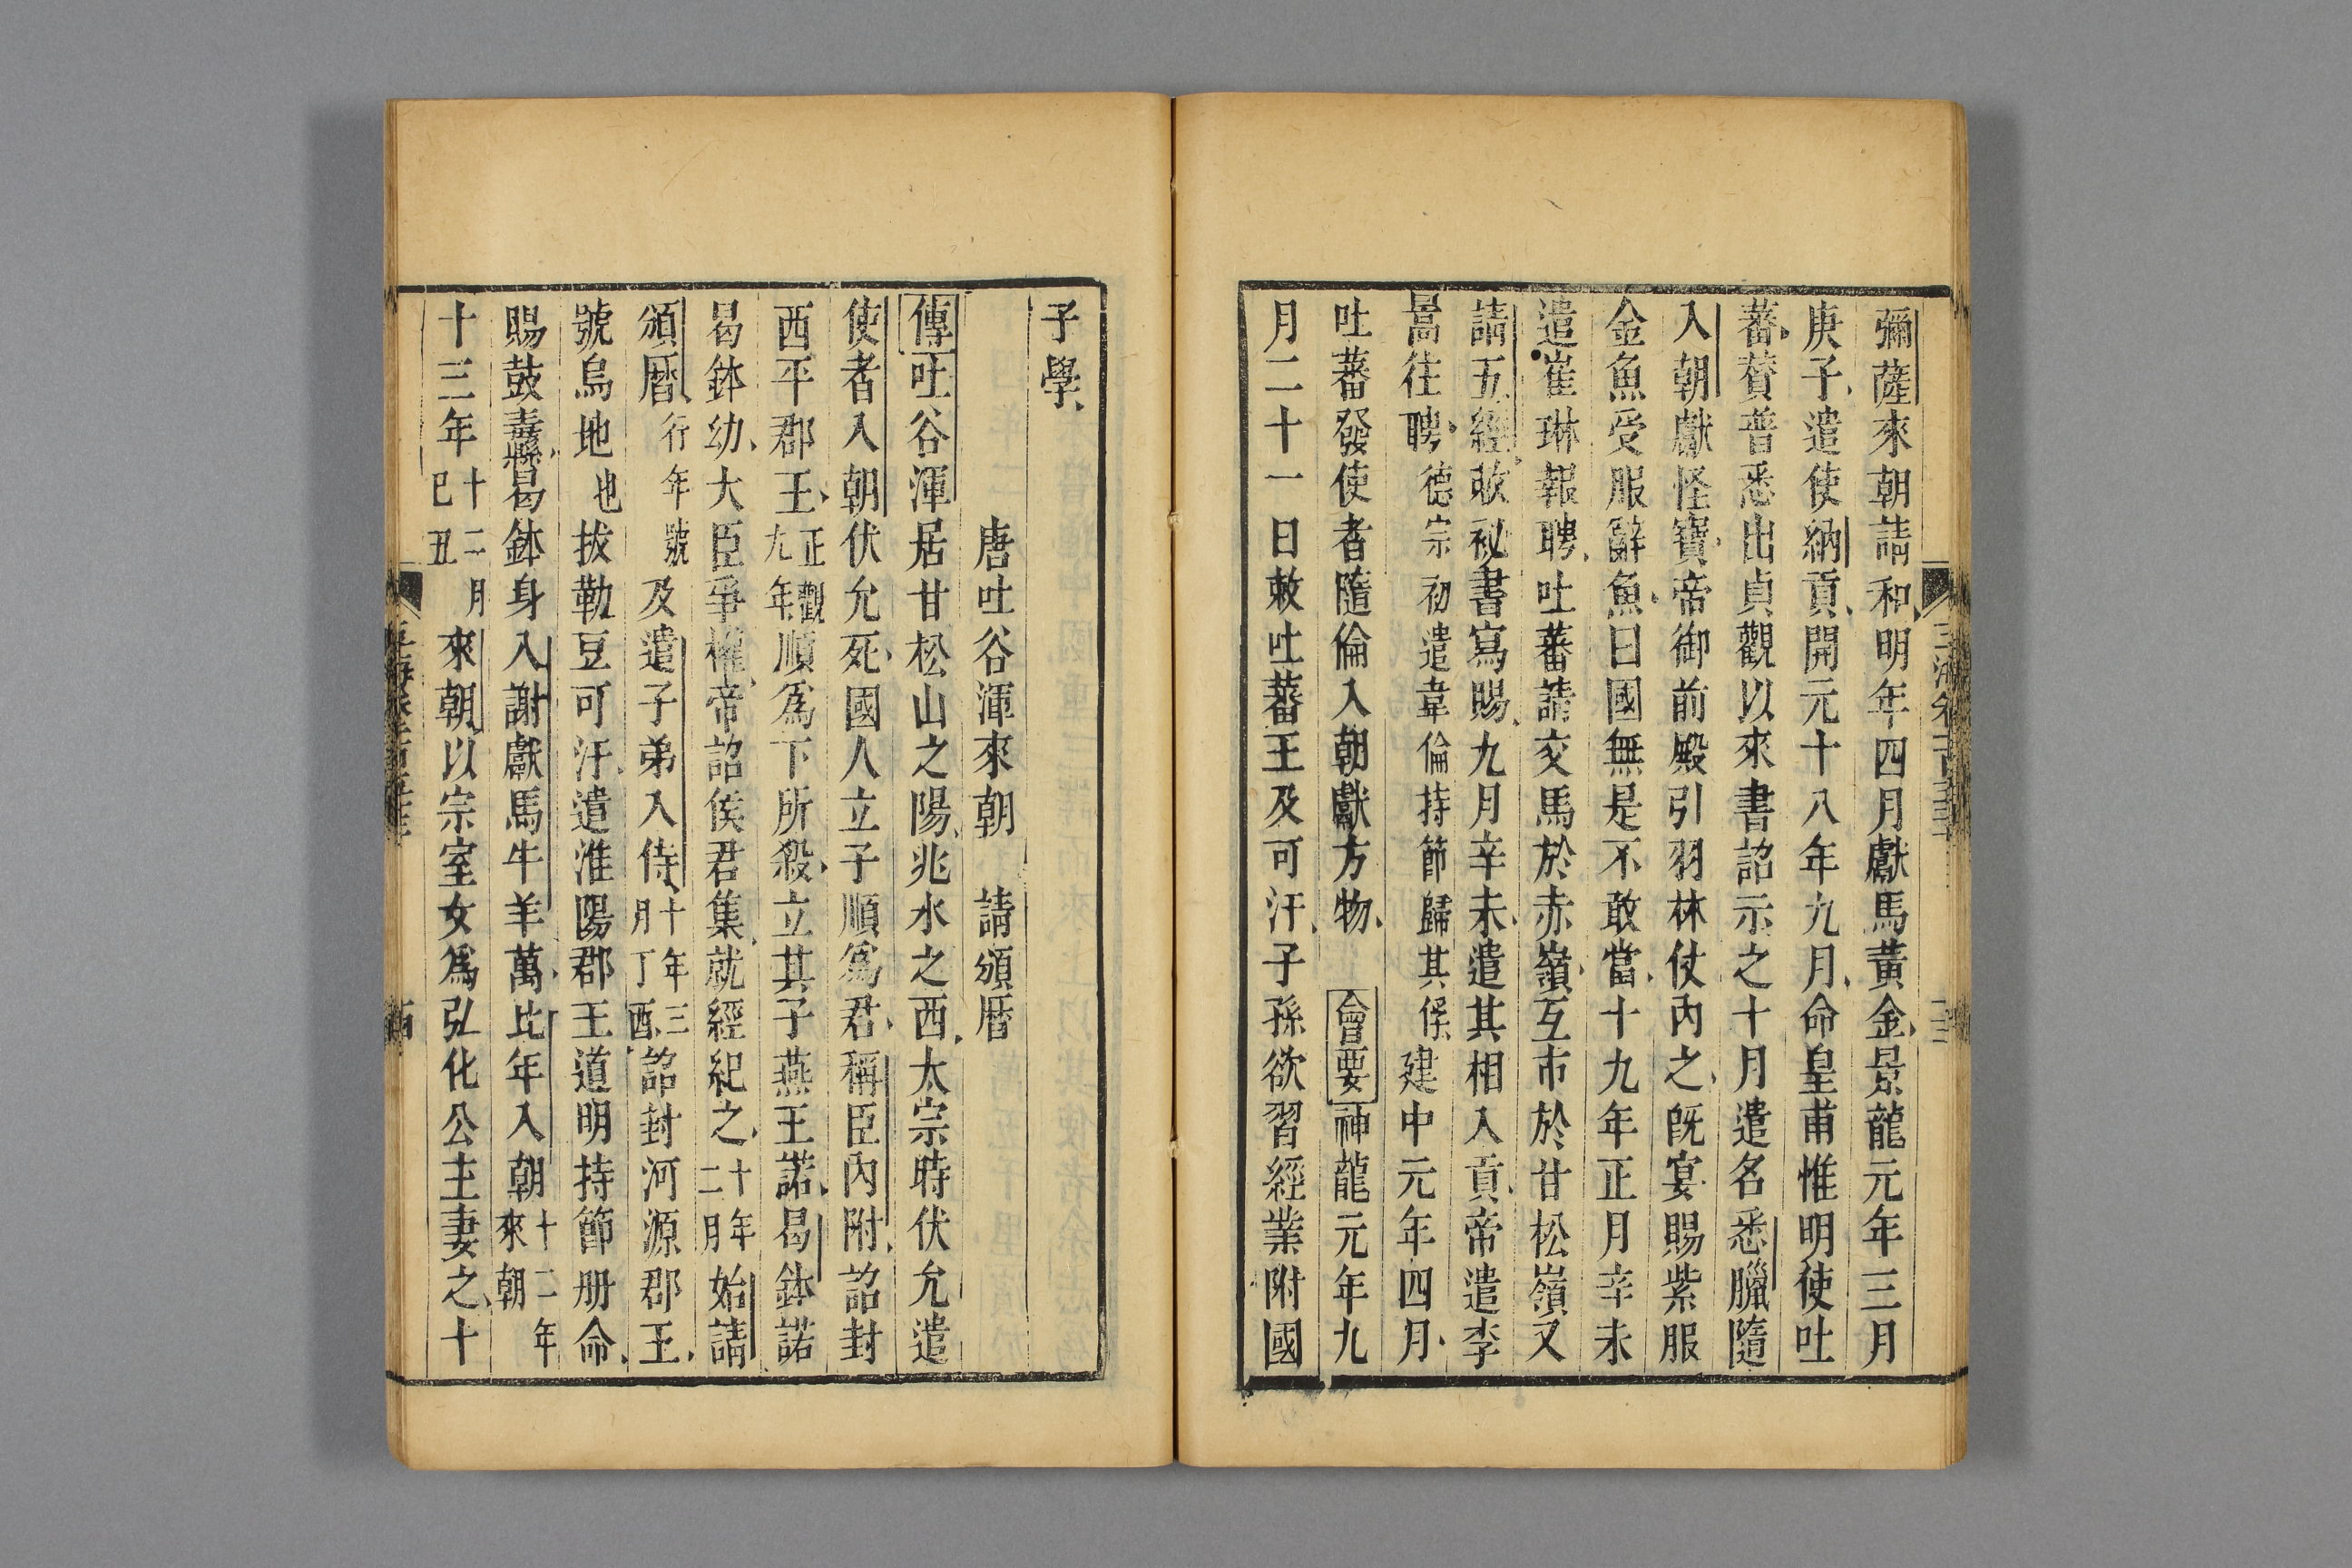 彌薩來朝請和明年四月獻馬黃金景龍元年三月
庚子遣使納貢開元十八年九月命皇甫惟明使吐
蕃贊普悉出貞觀以來書詔示之十月遣名悉臘隨
入朝獻怪寶帝御前殿引羽林仗內之旣宴賜紫服
金魚受服辭魚曰國無是不敢當十九年正月辛未
遣崔琳報聘吐蕃請交馬於赤嶺互市於甘松嶺又
請五經敕秘書寫賜九月辛未遣其相入貢帝遣李
暠往聘德宗初遣韋倫持節歸其俘建中元年四月
吐蕃發使者隨倫入朝獻方物 會要神龍元年九
月二十一日敕吐蕃王及可汗子孫欲習經業附國
子學
唐吐谷渾來朝 請頒曆
傳吐谷渾居甘松山之陽兆水之西太宗時伏允遣
使者入朝伏允死國人立子順爲君稱臣內附詔封
西平郡王正觀九年順爲下所殺立其子燕王諾曷鉢諾
曷鉢幼大臣爭權帝詔侯君集就經紀之十年二月始請
頒曆行年號及遣子弟入侍十年三月丁酉詔封河源郡王
號烏地也拔勒豆可汗遣淮陽郡王道明持節册命
賜鼓纛曷鉢身入謝獻馬牛羊萬比年入朝十二年來朝
十三年十二月己丑來朝以宗室女爲弘化公主妻之十